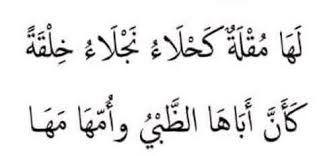 لَهَا مُقْلَةٌ كَحْلَاءُ نَجْلَاءُ خِلْقَةً
كَأَنَّ أَبَاهَا الظَّبْيُ وأُمّهَا مَهَا